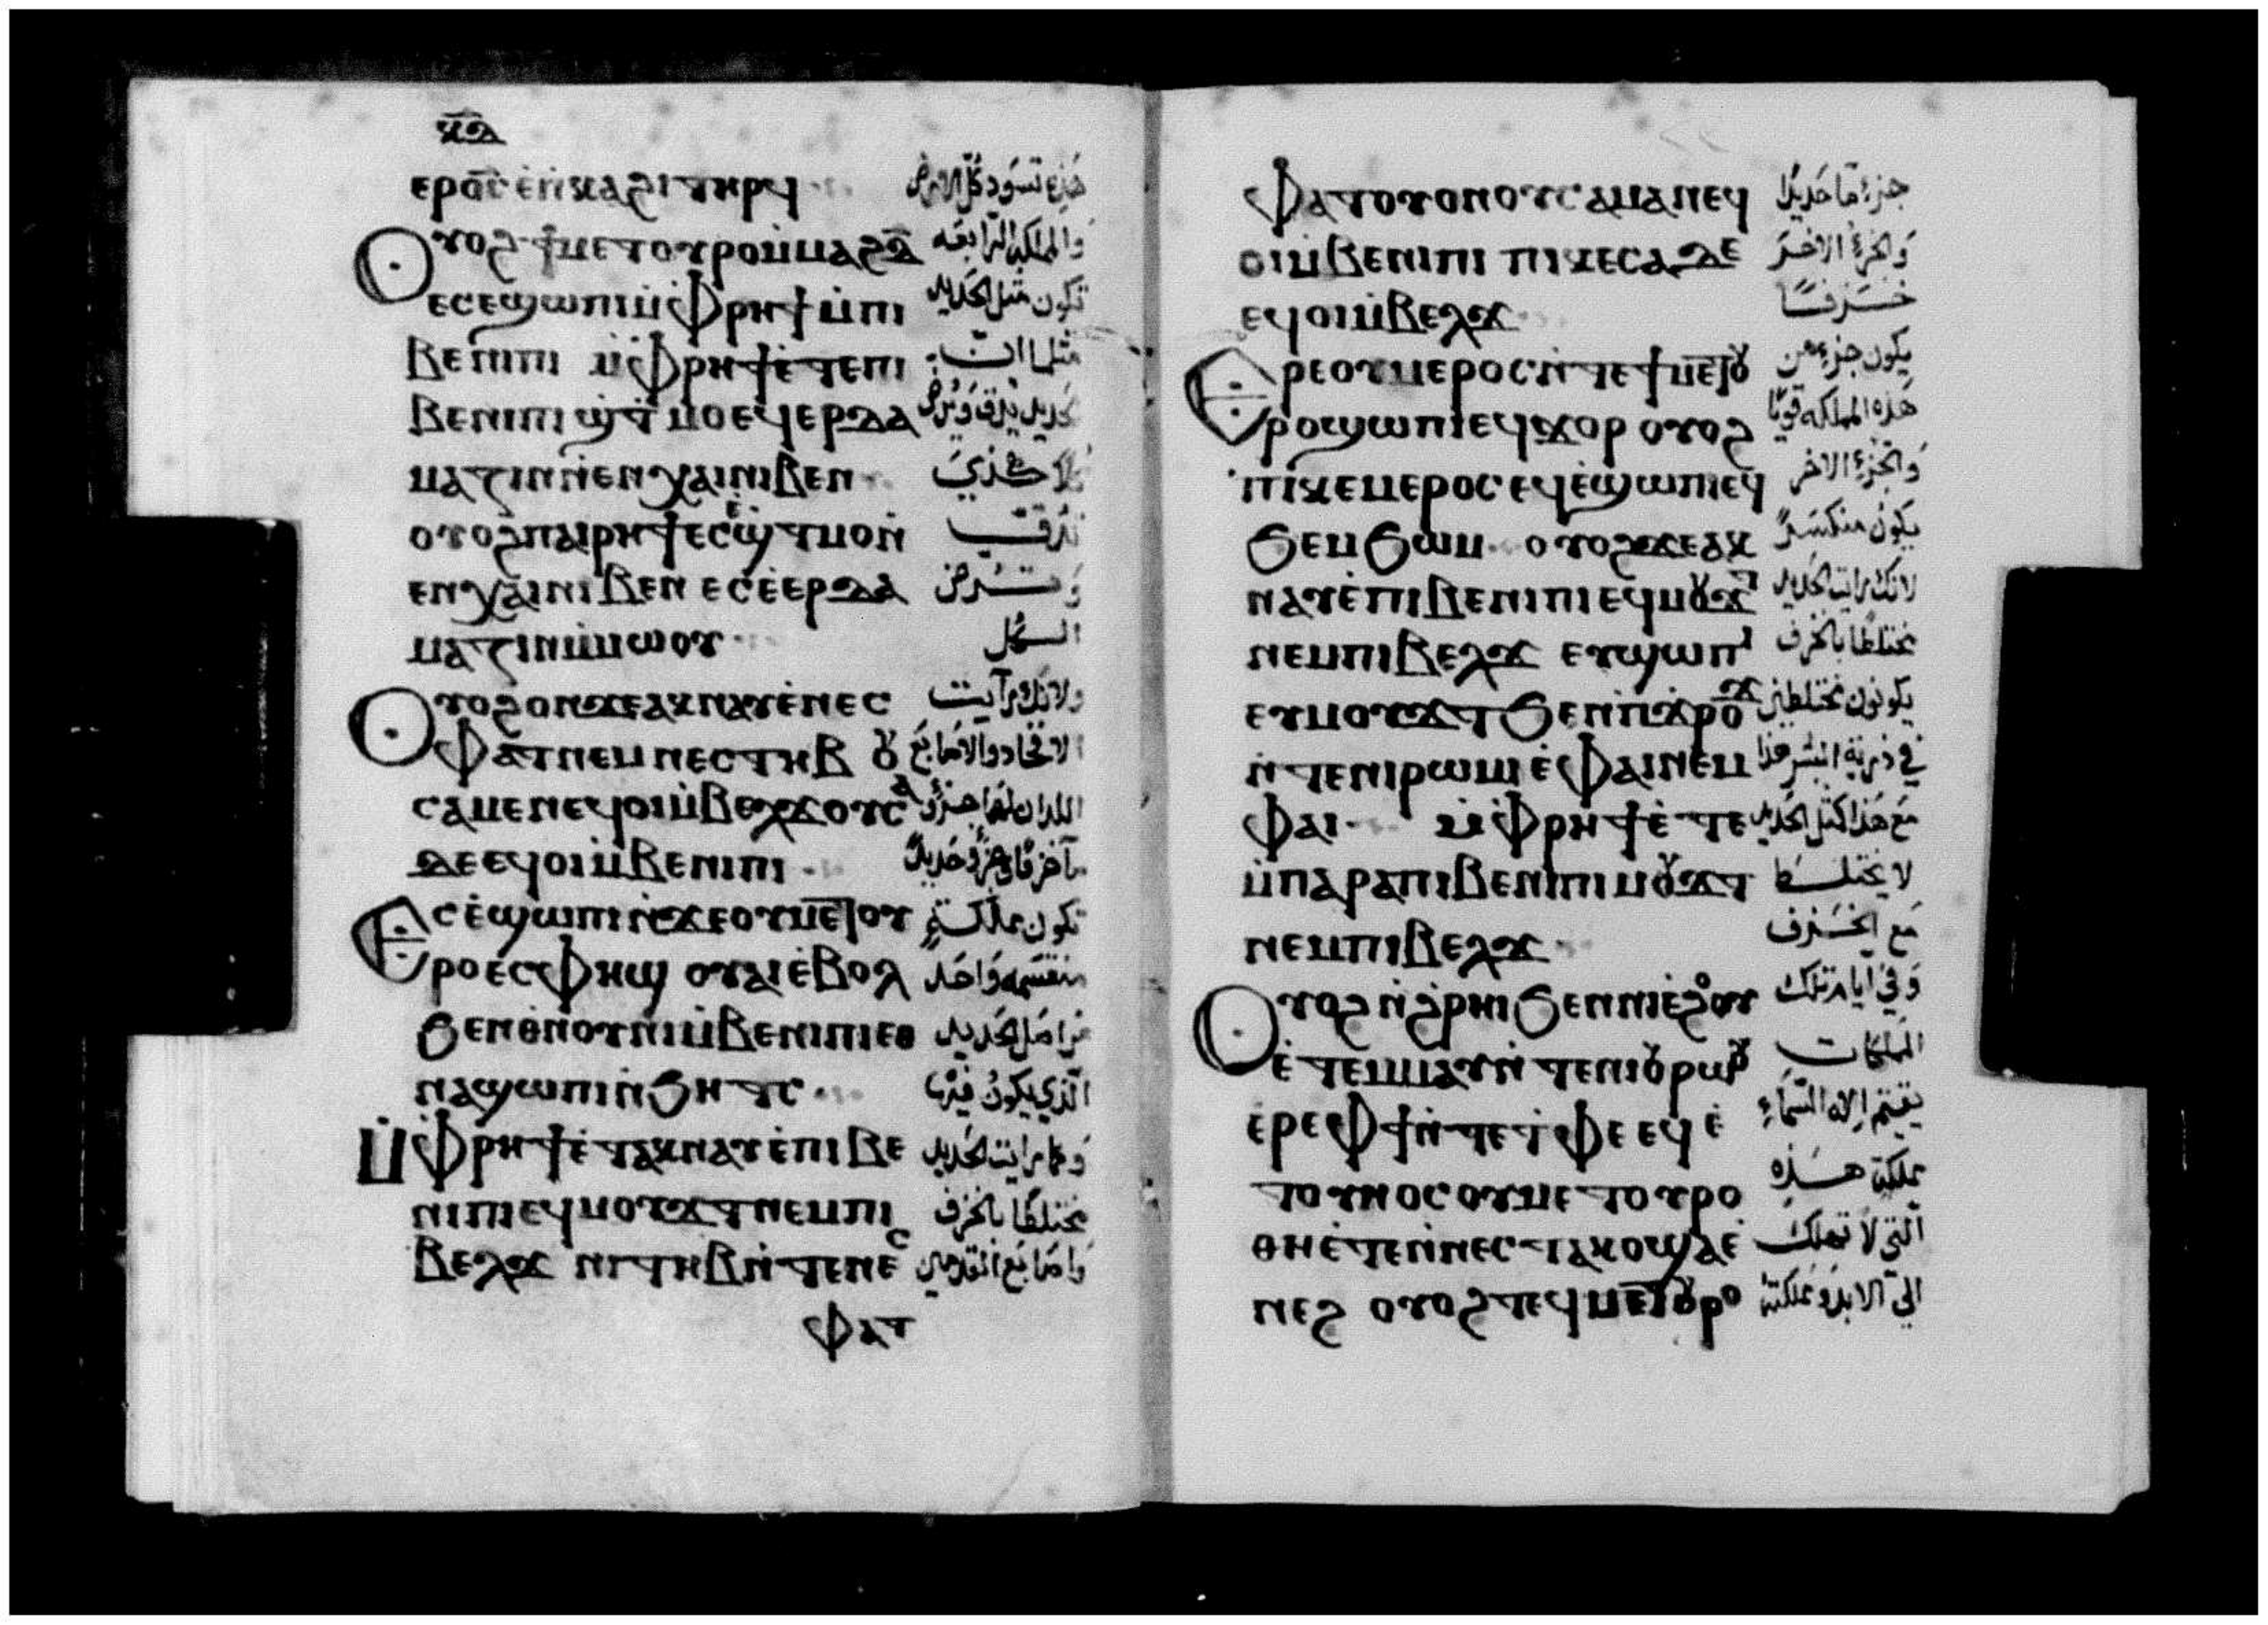 ⲕⲇ
ⲉⲣⲟ̅ⲥ ⲉ̀ⲡⲕⲁϩⲓ ⲧⲏⲣϥ هذه تسود كل الارض
Ⲟⲩⲟϩ ϯⲙⲉⲧⲟⲩⲣⲟ ⲙ̀ⲙⲁϩ ⲇ̅ والمملكة الرابعه
ⲉⲥⲉϣⲱⲡⲓ ⲙ̀ⲫⲣⲏϯ ⲙ̀ⲡⲓ تكون مثل الحديد
ⲃⲉⲛⲓⲡⲓ ⲙ̀ⲫⲣⲏϯ ⲉ̀ⲧⲉ ⲡⲓ مثلما ان
ⲃⲉⲛⲓⲡⲓ ϣⲧ̀ⲙⲟ ⲉϥⲉⲣⲇⲁ حديد يدق ويرض
ⲙⲁⲍⲓⲛ ⲛ̀ⲉⲛⲭⲁⲓ ⲛⲓⲃⲉⲛ
ⲟⲩⲟϩ ⲡⲁⲓⲣⲏϯ ⲉⲥⲉ̀ϣⲧⲙⲟ ⲛ̀ تدق
ⲉⲛⲭⲁⲓ ⲛⲓⲃⲉⲛ ⲉⲥⲉ̀ⲉⲣⲇⲁ وترض
ⲙⲁⲍⲓⲛ ⲙ̀ⲙⲱⲟⲩ الكل
Ⲟⲩⲟϩ ⲟⲛ ϫⲉ ⲁⲕⲛⲁⲩ ⲉ̀ⲛⲉⲥ ولانك رايت
ⲫⲁⲧ ⲛⲉⲙ ⲛⲉⲥⲧⲏⲃ ⲟⲩ الافخاد والاصابع
ⲥⲁ ⲙⲉⲛ ⲉϥⲟⲓ ⲙ̀ⲃⲉⲗϫ ⲟⲩⲥⲁ اللدان لهما جزوًا
ⲇⲉ ⲉϥⲟⲓ ⲙ̀ⲃⲉⲛⲓⲡⲓ ما خزفًا وجزؤ حديدًا
Ⲉⲥⲉ̀ϣⲱⲡⲓ ⲛ̀ϫⲉ ⲟⲩⲙⲉⲧⲟⲩ تكون مملكة
ⲣⲟ ⲉⲥⲫⲏϣ ⲟⲩⲁⲓ ⲉ̀ⲃⲟⲗ منقسمه واحد
ϧⲉⲛ ⲑⲛⲟⲩⲛⲓ ⲙ̀ⲃⲉⲛⲓⲡⲓ ⲉⲑ من اصل الحديد
ⲛⲁϣⲱⲡⲓ ⲛ̀ϧⲏⲧⲥ الذي يكون فيها
Ⲙ̀ⲫⲣⲏϯ ⲉ̀ⲧⲁⲕⲛⲁⲩ ⲉ̀ⲡⲓⲃⲉ وكما رايت الحديد
ⲛⲓⲡⲓ ⲉϥⲙⲟⲩϫⲧ ⲛⲉⲙ ⲡⲓ مختلطًا بالخزف
ⲃⲉⲗϫ ⲛⲓⲧⲏⲃ ⲛ̀ⲧⲉ ⲛⲉⲥ واصابع القدمين
ⲫⲁⲧ
ⲫⲁⲧ ⲟⲩⲟⲛ ⲟⲩⲥⲁ ⲙⲁ ⲛⲉϥ جزءًا ما حديدًا
ⲟⲓ ⲙ̀ⲃⲉⲛⲓⲡⲓ ⲡⲓⲕⲉⲥⲁ ⲇⲉ والجزء الاخر
ⲉϥⲟⲓ ⲙ̀ⲃⲉⲗϫ خزفًا
Ⲉⲣⲉ ⲟⲩⲙⲉⲣⲟⲥ ⲛ̀ⲧⲉ ϯⲙⲉⲧⲟⲩ يكون جزء من
ⲣⲟ ϣⲱⲡⲓ ⲉϥϫⲟⲣ ⲟⲩⲟϩ هذه المملكه قويًا
ⲡⲓⲕⲉⲙⲉⲣⲟⲥ ⲉϥⲉ̀ϣⲱⲡⲓ ⲉϥ والجزء الاخر
ϧⲉⲙϧⲱⲙ ⲟⲩⲟϩ ϫⲉ ⲁⲕ يكون منكسرًا
ⲛⲁⲩ ⲉ̀ⲡⲓⲃⲉⲛⲓⲡⲓ ⲉϥⲙⲟⲩϫⲧ لانك رايت الحديد
ⲛⲉⲙ ⲡⲓⲃⲉⲗϫ ⲉⲩϣⲱⲡⲓ مختلطًا بالخزف
ⲉⲩⲙⲟⲩϫⲧ ϧⲉⲛ ⲡ̀ϫⲣⲟϫ يكونون مختلطين
ⲛ̀ⲧⲉ ⲛⲓⲣⲱⲙⲓ ⲉ̀ⲫⲁⲓ ⲛⲉⲙ في ذرية البشر هذا
ⲫⲁⲓ ⲙ̀ⲫⲣⲏϯ ⲉ̀ⲧⲉ مع هذا كمثل الحديد
ⲙ̀ⲡⲁⲣⲁ ⲡⲓⲃⲉⲛⲓⲡⲓ ⲙⲟⲩϫⲧ لا يختلط
ⲛⲉⲙ ⲡⲓⲃⲉⲗϫ مع الخزف
Ⲟⲩⲟϩ ⲛ̀ϩⲣⲏⲓ ϧⲉⲛ ⲛⲓⲉ̀ϩⲟⲟⲩ وفي ايام تلك
ⲉ̀ⲧⲉⲙⲙⲁⲩ ⲛ̀ⲧⲉ ⲛⲓⲟⲩⲣⲱⲟⲩ المملكات
ⲉ̀ⲣⲉ ⲫϯ ⲛ̀ⲧⲉ ⲧ̀ⲫⲉ ⲉϥⲉ̀ يقيم اله السماء
ⲧⲟⲩⲛⲟⲥ ⲟⲩⲙⲉⲧⲟⲩⲣⲟ مملكة هذه
ⲑⲏ ⲉ̀ⲧⲉ ⲛ̀ⲛⲉⲥⲧⲁⲕⲟ ϣⲁ ⲉ̀ التي لا تهلك
ⲛⲉϩ ⲟⲩⲟϩ ⲧⲉϥⲙⲉⲧⲟⲩⲣⲟ الي الابد ومملكته